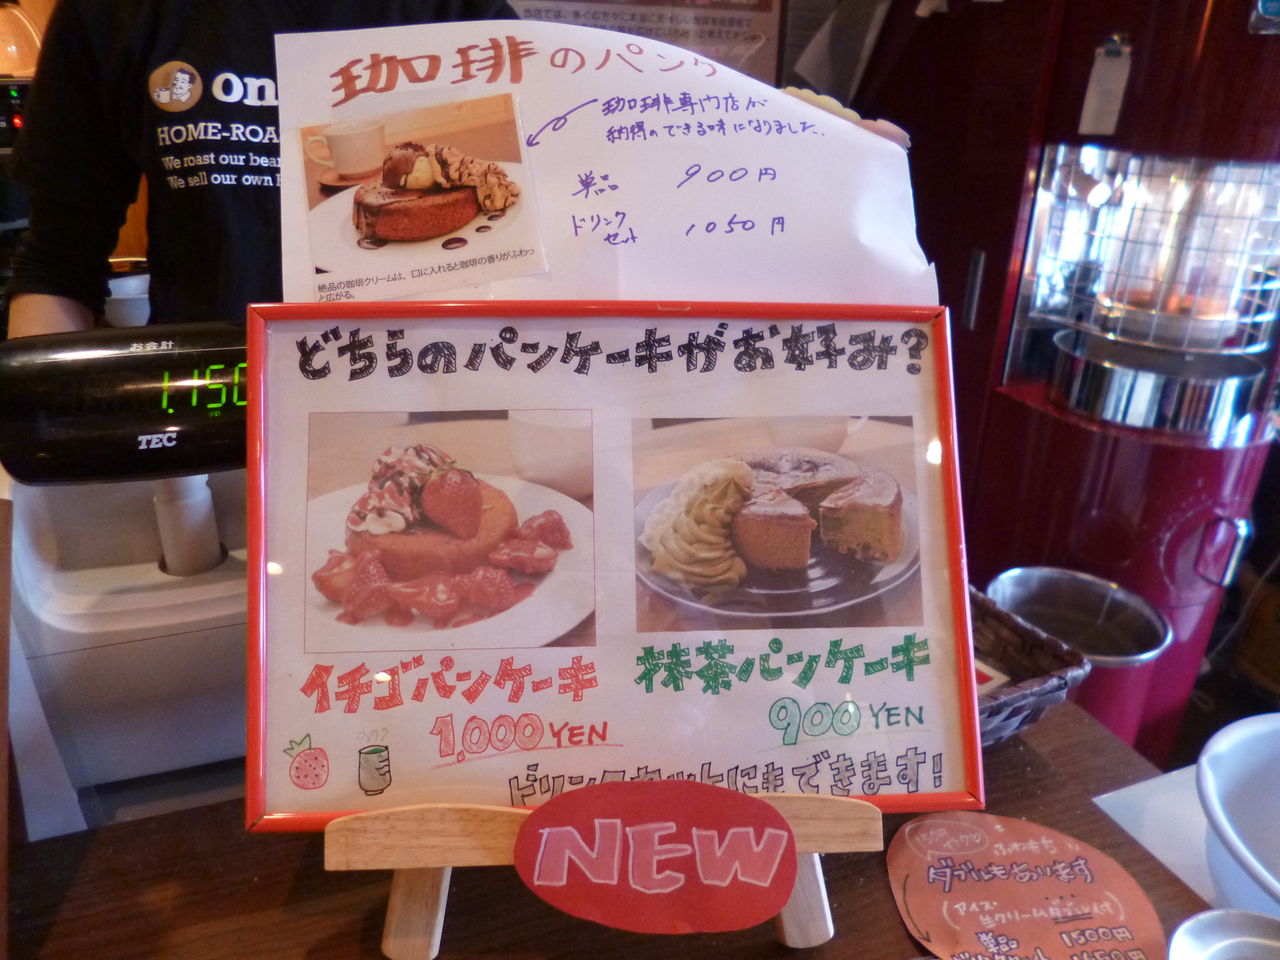 珈琲のパンケ
珈琲専門店が
納得のできる味になりました。
単品 900円
ドリンク
セット 1050円
絶品の珈琲クリームは、口に入れると珈琲の香りがふわっ
と広がる。
on
HOME-ROA
We roast our bea
We sell our own
お会計
1.150
小計
TEC
どちらのパンケーキがお好み?
イチゴパンケーキ
1,000 YEN
抹茶パンケーキ
900 YEN
ドリンクセットにもできます!
NEW
ふわもち
ダブルもあります
アイス
生クリームダブル付
単品 1500円
1650円